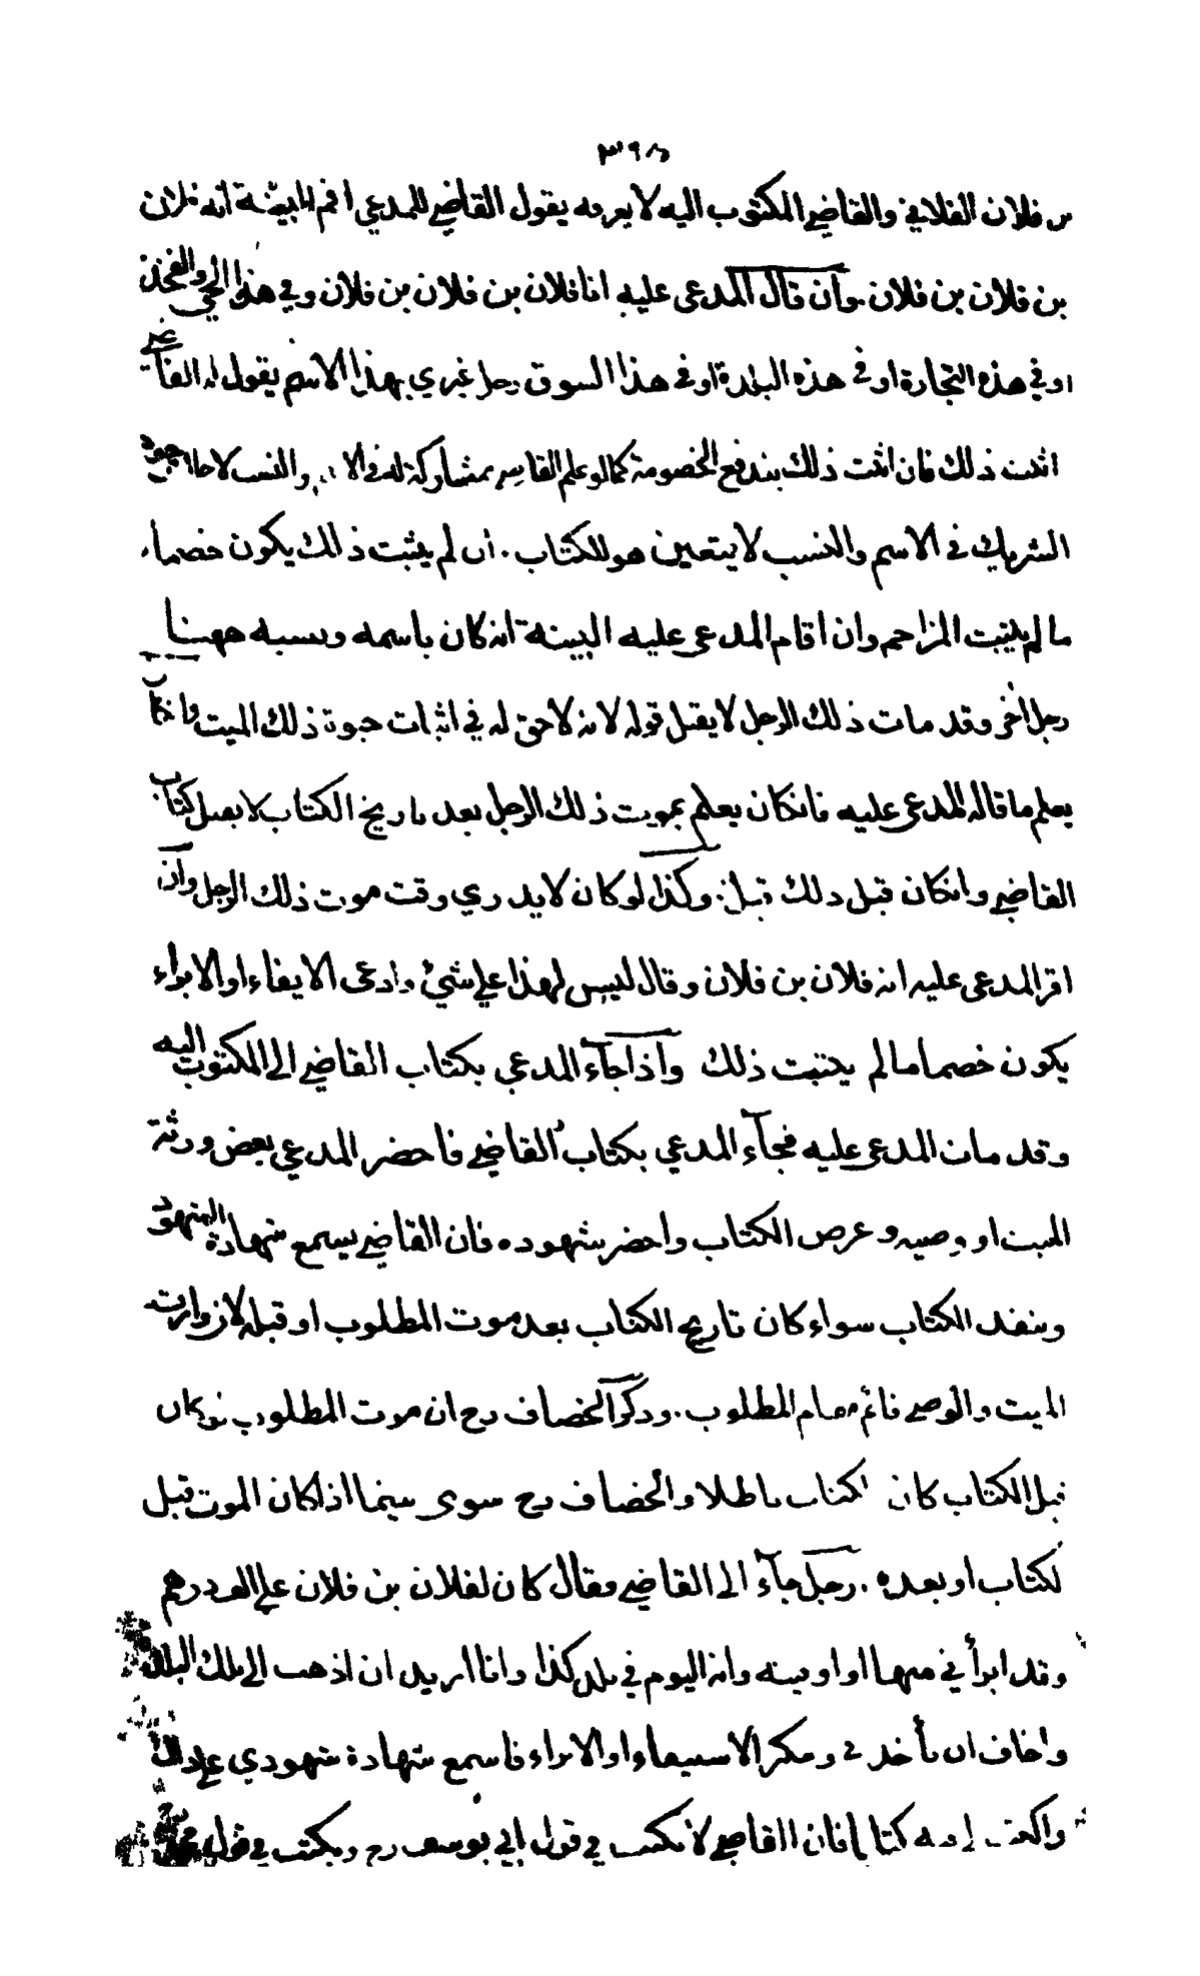 ٣٩٨
بن فلان الفلاني والقاضي المكتوب اليه لا يعرفه يقول القاضي للمدعي اقم البينة انه فلان
بن فلان بن فلان وان قال المدعى عليه انا فلان بن فلان بن فلان وفي هذا الحي والفخذ
او في هذه التجارة او في هذه البلدة او في هذا السوق رجل غيري بهذا الاسم يقول له القاضي
اثبت ذلك فان اثبت ذلك يندفع الخصومة كما لو علم القاضي بمشاركة له في الاسم والنسب لا حال وجود
الشريك في الاسم والنسب لا يتعين هو للكتاب . ان لم يثبت ذلك يكون خصما
ما لم يثبت المزاحم وان اقام المدعى عليه البينة انه كان باسمه ونسبه ههنا
رجل آخر وقد مات ذلك الرجل لا يقبل قوله لانه لا حق له في اثبات حيوة ذلك الميت
يعلم ما قاله المدعى عليه فانكان يعلم بموت ذلك الرجل بعد تاريخ الكتاب لا يقبل كتاب
القاضي وانكان قبل ذلك قبل . وكذا لو كان لا يدري وقت موت ذلك الرجل وان
اقر المدعى عليه انه فلان بن فلان وقال ليس لهذا علي شيئ وادعى الايفاء او الابراء
يكون خصما ما لم يثبت ذلك واذا جآء المدعي بكتاب القاضي الى المكتوب اليه
وقد مات المدعى عليه فجآء المدعي بكتاب القاضي فاحضر المدعي بعض ورثة
الميت او وصيه وعرض الكتاب واحضر شهوده فان القاضي يسمع شهادة الشهود
وينفذ الكتاب سواء كان تاريخ الكتاب بعد موت المطلوب او قبله لان وارث
الميت والوصي قائم مقام المطلوب . وذكر الخصاف رح ان موت المطلوب كان
قبل الكتاب كان الكتاب باطلا والخصاف رح سوى بينما اذا كان الموت قبل
لكتاب او بعده . رجل جآء الى القاضي فقال كان لفلان بن فلان علي الف درهم
وقد ابرأني منها او اوفيته وانه اليوم في بلد كذا وانا اريد ان اذهب الى تلك البلدة
واخاف ان يأخذني وينكر الاستيفاء او الابراء فاسمع شهادة شهودي على ذلك
واكتب لي اليه كتابا فان القاضي لا يكتب في قول ابي يوسف رح ويكتب في قول محمد